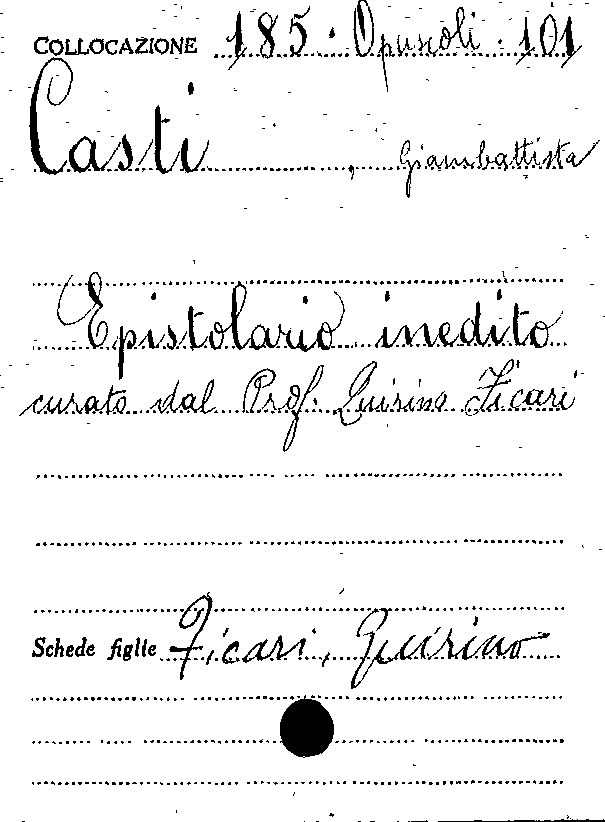 COLLOCAZIONE 185 · Opuscoli · 101
Casti, Giambattista
Epistolario inedito
curato dal Prof. Quirino Ficari
Schede figlie Ficari, Quirino